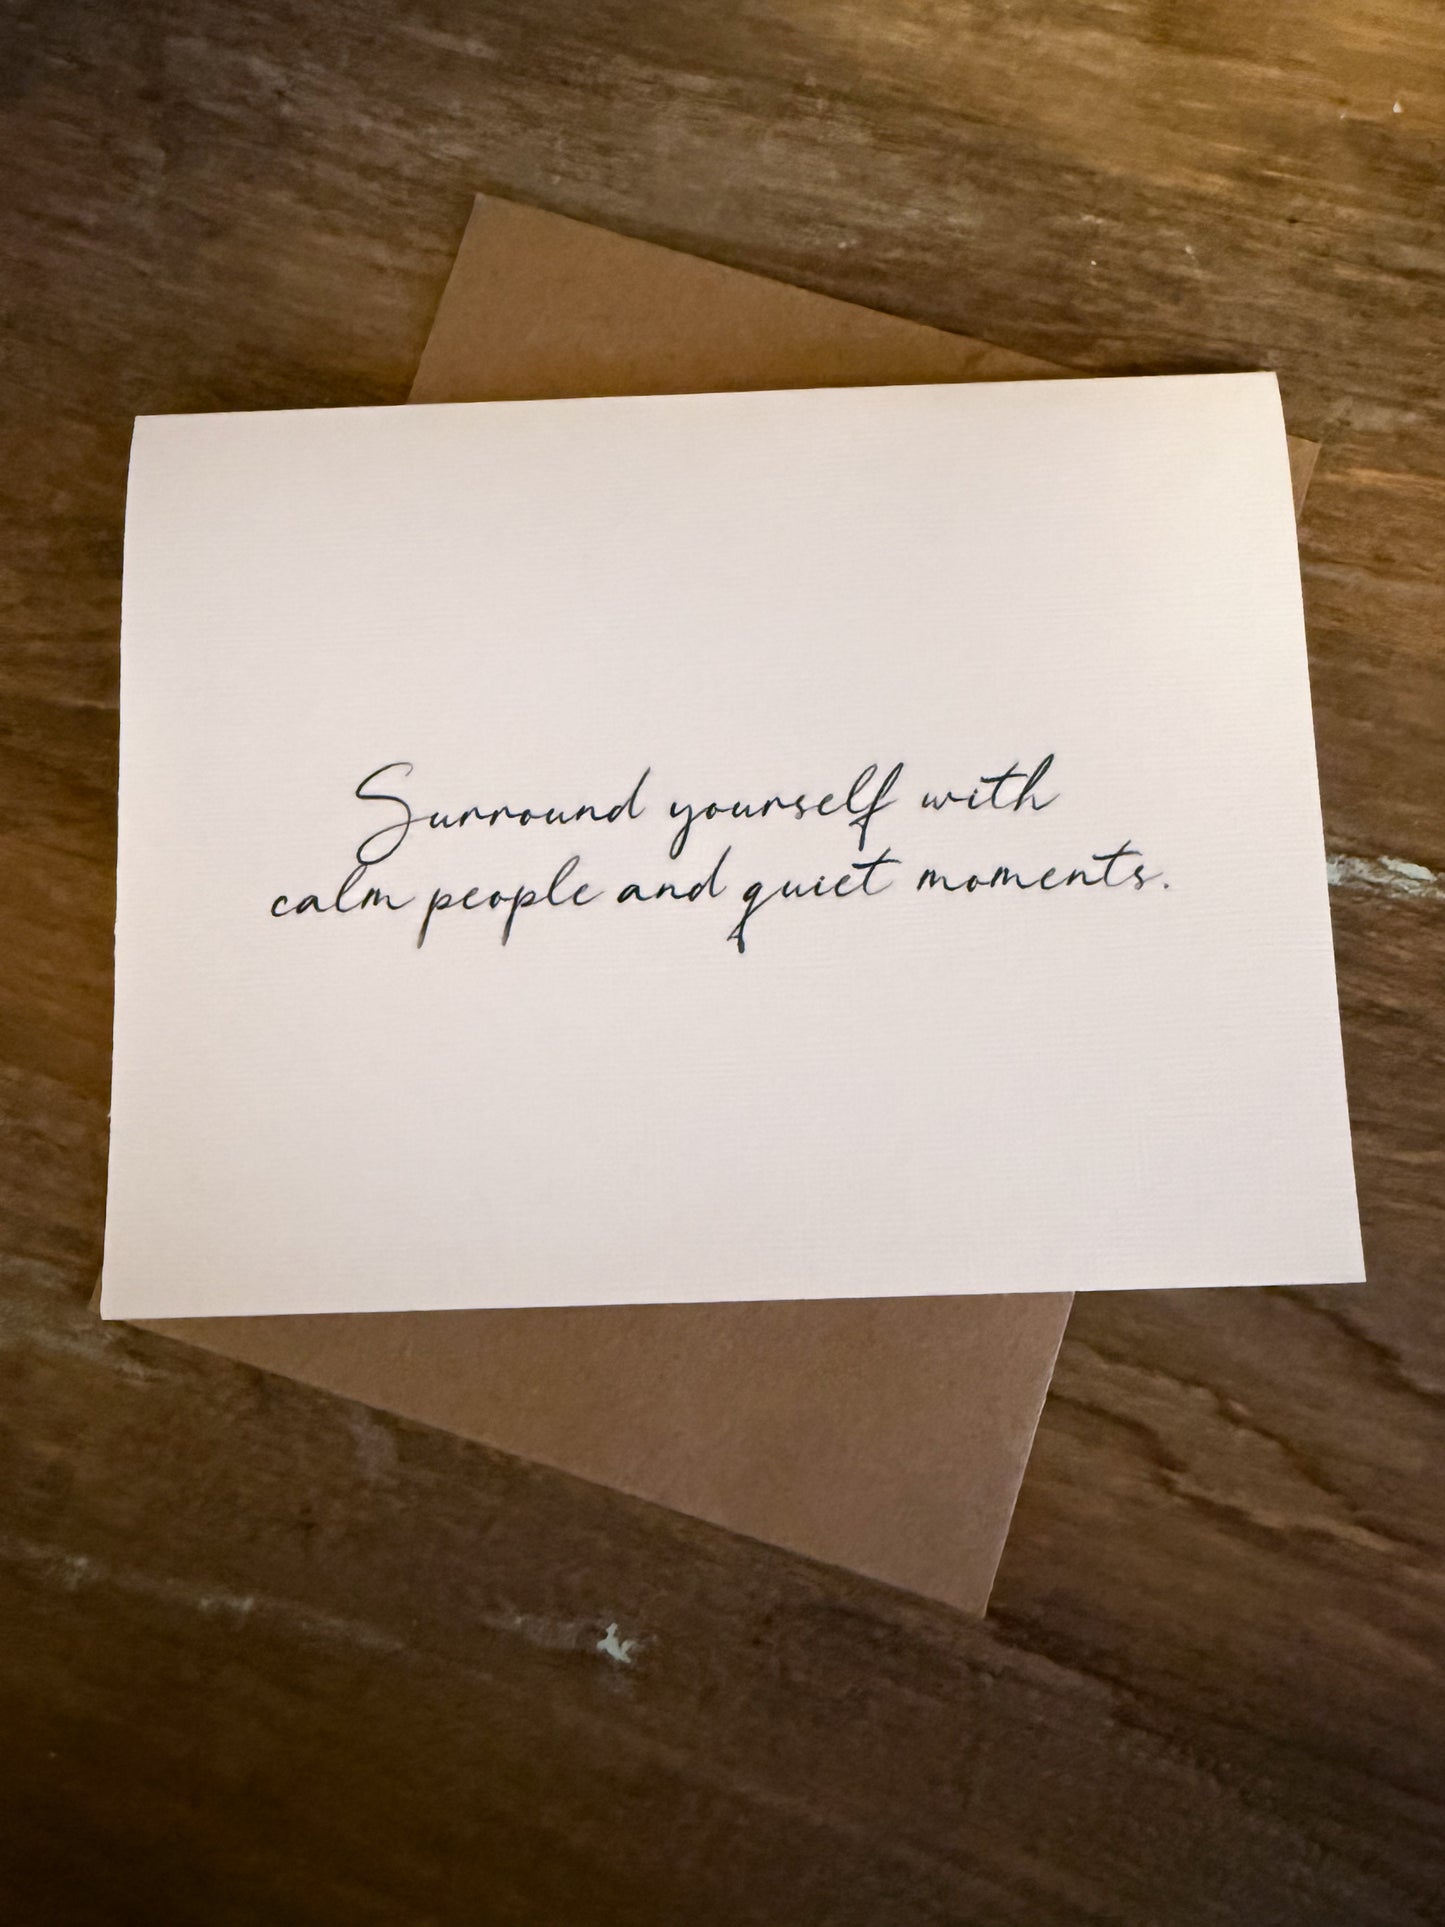 Surround yourself with
calm people and quiet moments.